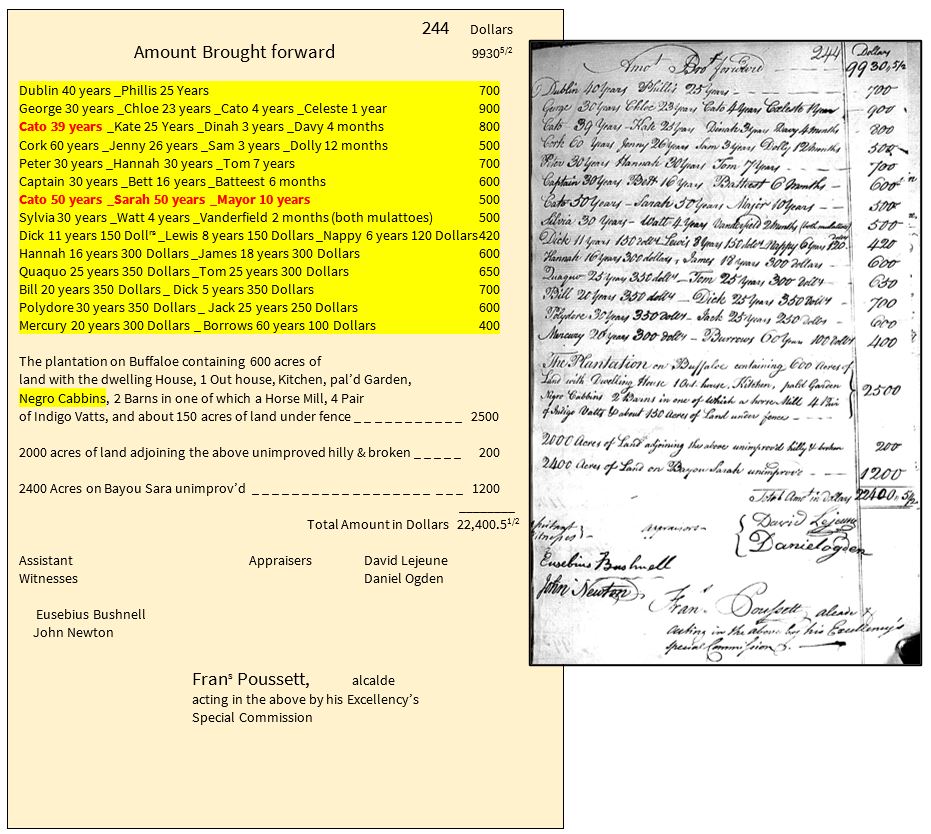 244 Dollars
Amount Brought forward 9930 5/2
Dublin 40 years _Phillis 25 Years 700
George 30 years _Chloe 23 years _Cato 4 years _Celeste 1 year 900
Cato 39 years _Kate 25 Years _Dinah 3 years _Davy 4 months 800
Cork 60 years _Jenny 26 years _Sam 3 years _Dolly 12 months 500
Peter 30 years _Hannah 30 years _Tom 7 years 700
Captain 30 years _Bett 16 years _Batteest 6 months 600
Cato 50 years _Sarah 50 years _Mayor 10 years 500
Sylvia 30 years _Watt 4 years _Vanderfield 2 months (both mulattoes) 500
Dick 11 years 150 Doll rs _Lewis 8 years 150 Dollars _Nappy 6 years 120 Dollars 420
Hannah 16 years 300 Dollars _James 18 years 300 Dollars 600
Quaquo 25 years 350 Dollars _Tom 25 years 300 Dollars 650
Bill 20 years 350 Dollars _ Dick 5 years 350 Dollars 700
Polydore 30 years 350 Dollars _ Jack 25 years 250 Dollars 600
Mercury 20 years 300 Dollars _ Borrows 60 years 100 Dollars 400
The plantation on Buffaloe containing 600 acres of
land with the dwelling House, 1 Out house, Kitchen, pal'd Garden,
Negro Cabbins, 2 Barns in one of which a Horse Mill, 4 Pair
of Indigo Vatts, and about 150 acres of land under fence _ _ _ _ _ _ _ _ _ _ _ 2500
2000 acres of land adjoining the above unimproved hilly & broken _ _ _ _ _ 200
2400 Acres on Bayou Sara unimprov'd _ _ _ _ _ _ _ _ _ _ _ _ _ _ _ 1200
Total Amount in Dollars 22,400.5 1/2
Assistant Appraisers David Lejeune
Witnesses Daniel Ogden
Eusebius Bushnell
John Newton
Fran s Poussett, alcalde
acting in the above by his Excellency's
Special Commission
244 Dollars
Amot Brot forward 9930,,5/2
Dublin 40 Years Phillis 25 Years 700
George 30 Years Chloe 23 Years Cato 4 Years Celeste 1 Year 900
Cato 39 Years Kate 25 Years Dinah 3 Years Davy 4 months 800
Cork 60 Years Jenny 26 Years Sam 3 Years Dolly 12 months 500
Peter 30 Years Hannah 30 Years Tom 7 Years 700
Captain 30 Years Bett 16 Years Batteest 6 months 600
Cato 50 Years Sarah 50 Years Major 10 Years 500
Silvia 30 Years Watt 4 Years Vanderfield 2 months (both mulattoes) 500
Dick 11 Years 150 dollrs Lewis 8 Years 150 dollrs Nappy 6 Years 120 dollrs 420
Hannah 16 Years 300 dollars James 18 Years 300 dollrs 600
Quaquo 25 Years 350 dollrs Tom 25 Years 300 dollrs 650
Bill 20 Years 350 dollrs Dick 25 Years 350 dollrs 700
Polydore 30 Years 350 dollrs Jack 25 Years 250 dollrs 600
Mercury 20 Years 300 dollrs Burrows 60 Years 100 dollrs 400
The Plantation on Buffaloe containing 600 Acres of
Land with Dwelling House 1 Out house, Kitchen, pal'd Garden
Negro Cabbins 2 Barns in one of which a horse Mill 4 Pair
of Indigo Vatts & about 150 Acres of Land under fence 2500
2000 Acres of Land adjoining the above unimprov'd hilly & broken 200
2400 Acres of Land on Bayou Sarah unimprov'd 1200
Total Amot in dollars 22400,,5/2
Appraisers David Lejeune
Daniel Ogden
Eusebius Bushnell
John Newton
Frans Poussett alcade
acting in the above by his Excellency's
special Commission